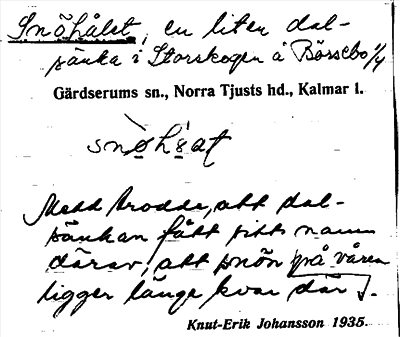 Snöhålet, en liten dal-
sänka i Storskogen å Börsebo 1/4
Gärdserums sn., Norra Tjusts hd., Kalmar l.
Med trodde, att dal-
sänkan fått sitt namn
därav, att snön på våren
ligger länge kvar där.
Knut-Erik Johansson 1935.